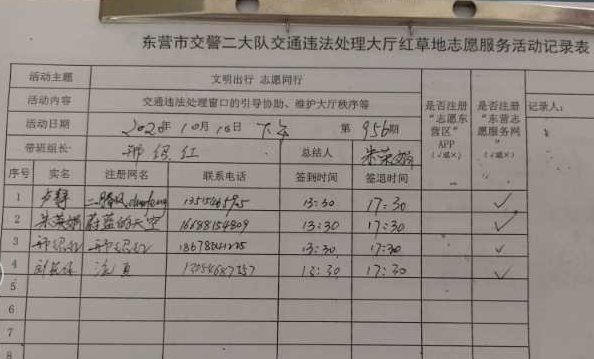 东营市交警二大队交通违法处理大厅红草地志愿服务活动记录表
活动主题 文明出行 志愿同行
活动内容 交通违法处理窗口的引导协助、维护大厅秩序等
是否注册“志愿东营区”APP（√或×）
是否注册“东营志愿服务网”（√或×）
记录人：
活动日期 2020年10月16日 下午 第956期
带班组长 红 总结人 朱荣娟
序号 实名 注册网名 联系电话 签到时间 签退时间
1 卢静 二腾风 13:30 17:30 √
2 朱荣娟 蔚蓝的天空 16688154809 13:30 17:30 √
3 13:30 17:30 √
4 13:30 17:30 √
5
6
7
8